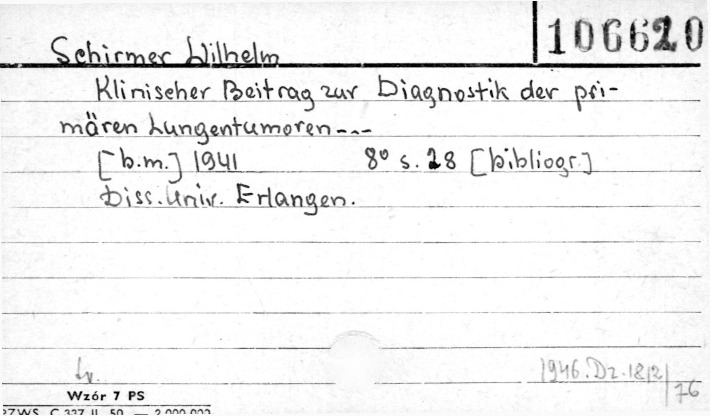 106620
Schirmer Wilhelm
Klinischer Beitrag zur Diagnostik der pri-
mären Lungentumoren---
[b.m.] 1941 8° s. 28 [bibliogr.]
Diss. Univ. Erlangen.
1946. Dz. 18/2/76
Wzór 7 PS
PZWS. C 337 II. 50. — 2.000.000